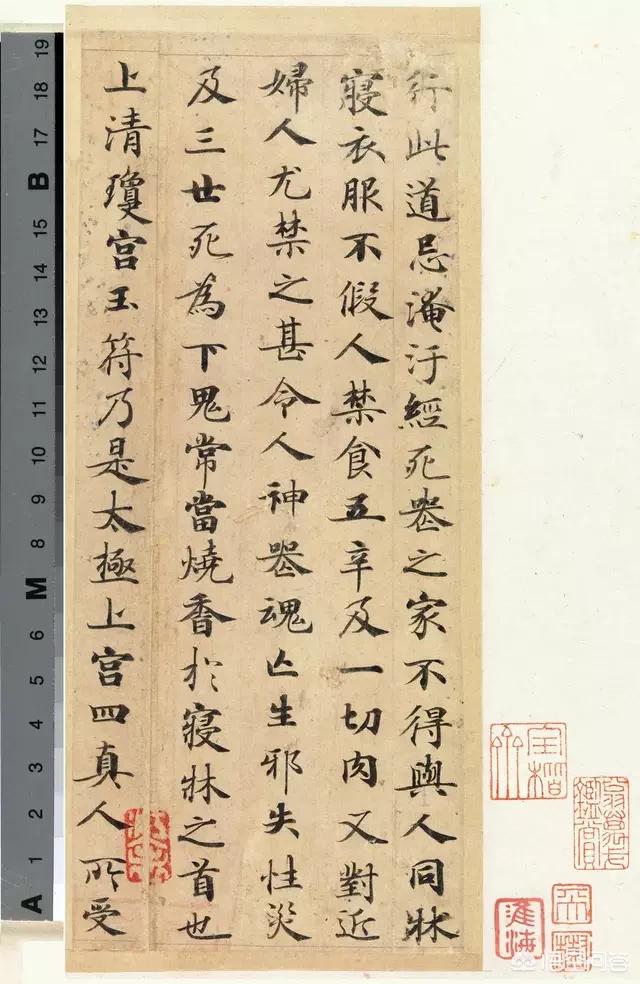 行此道忌淹汙經死喪之家不得與人同牀
寢衣服不假人禁食五辛及一切肉又對近
婦人尤禁之甚令人神喪魂亡生邪失性災
及三世死為下鬼常當燒香於寢牀之首也
上清瓊宮玉符乃是太極上宮四真人所受
A 1 2 3 4 5 6 M 8 9 10 11 12 13 14 15 B 17 18 19
淮海
悟空问答